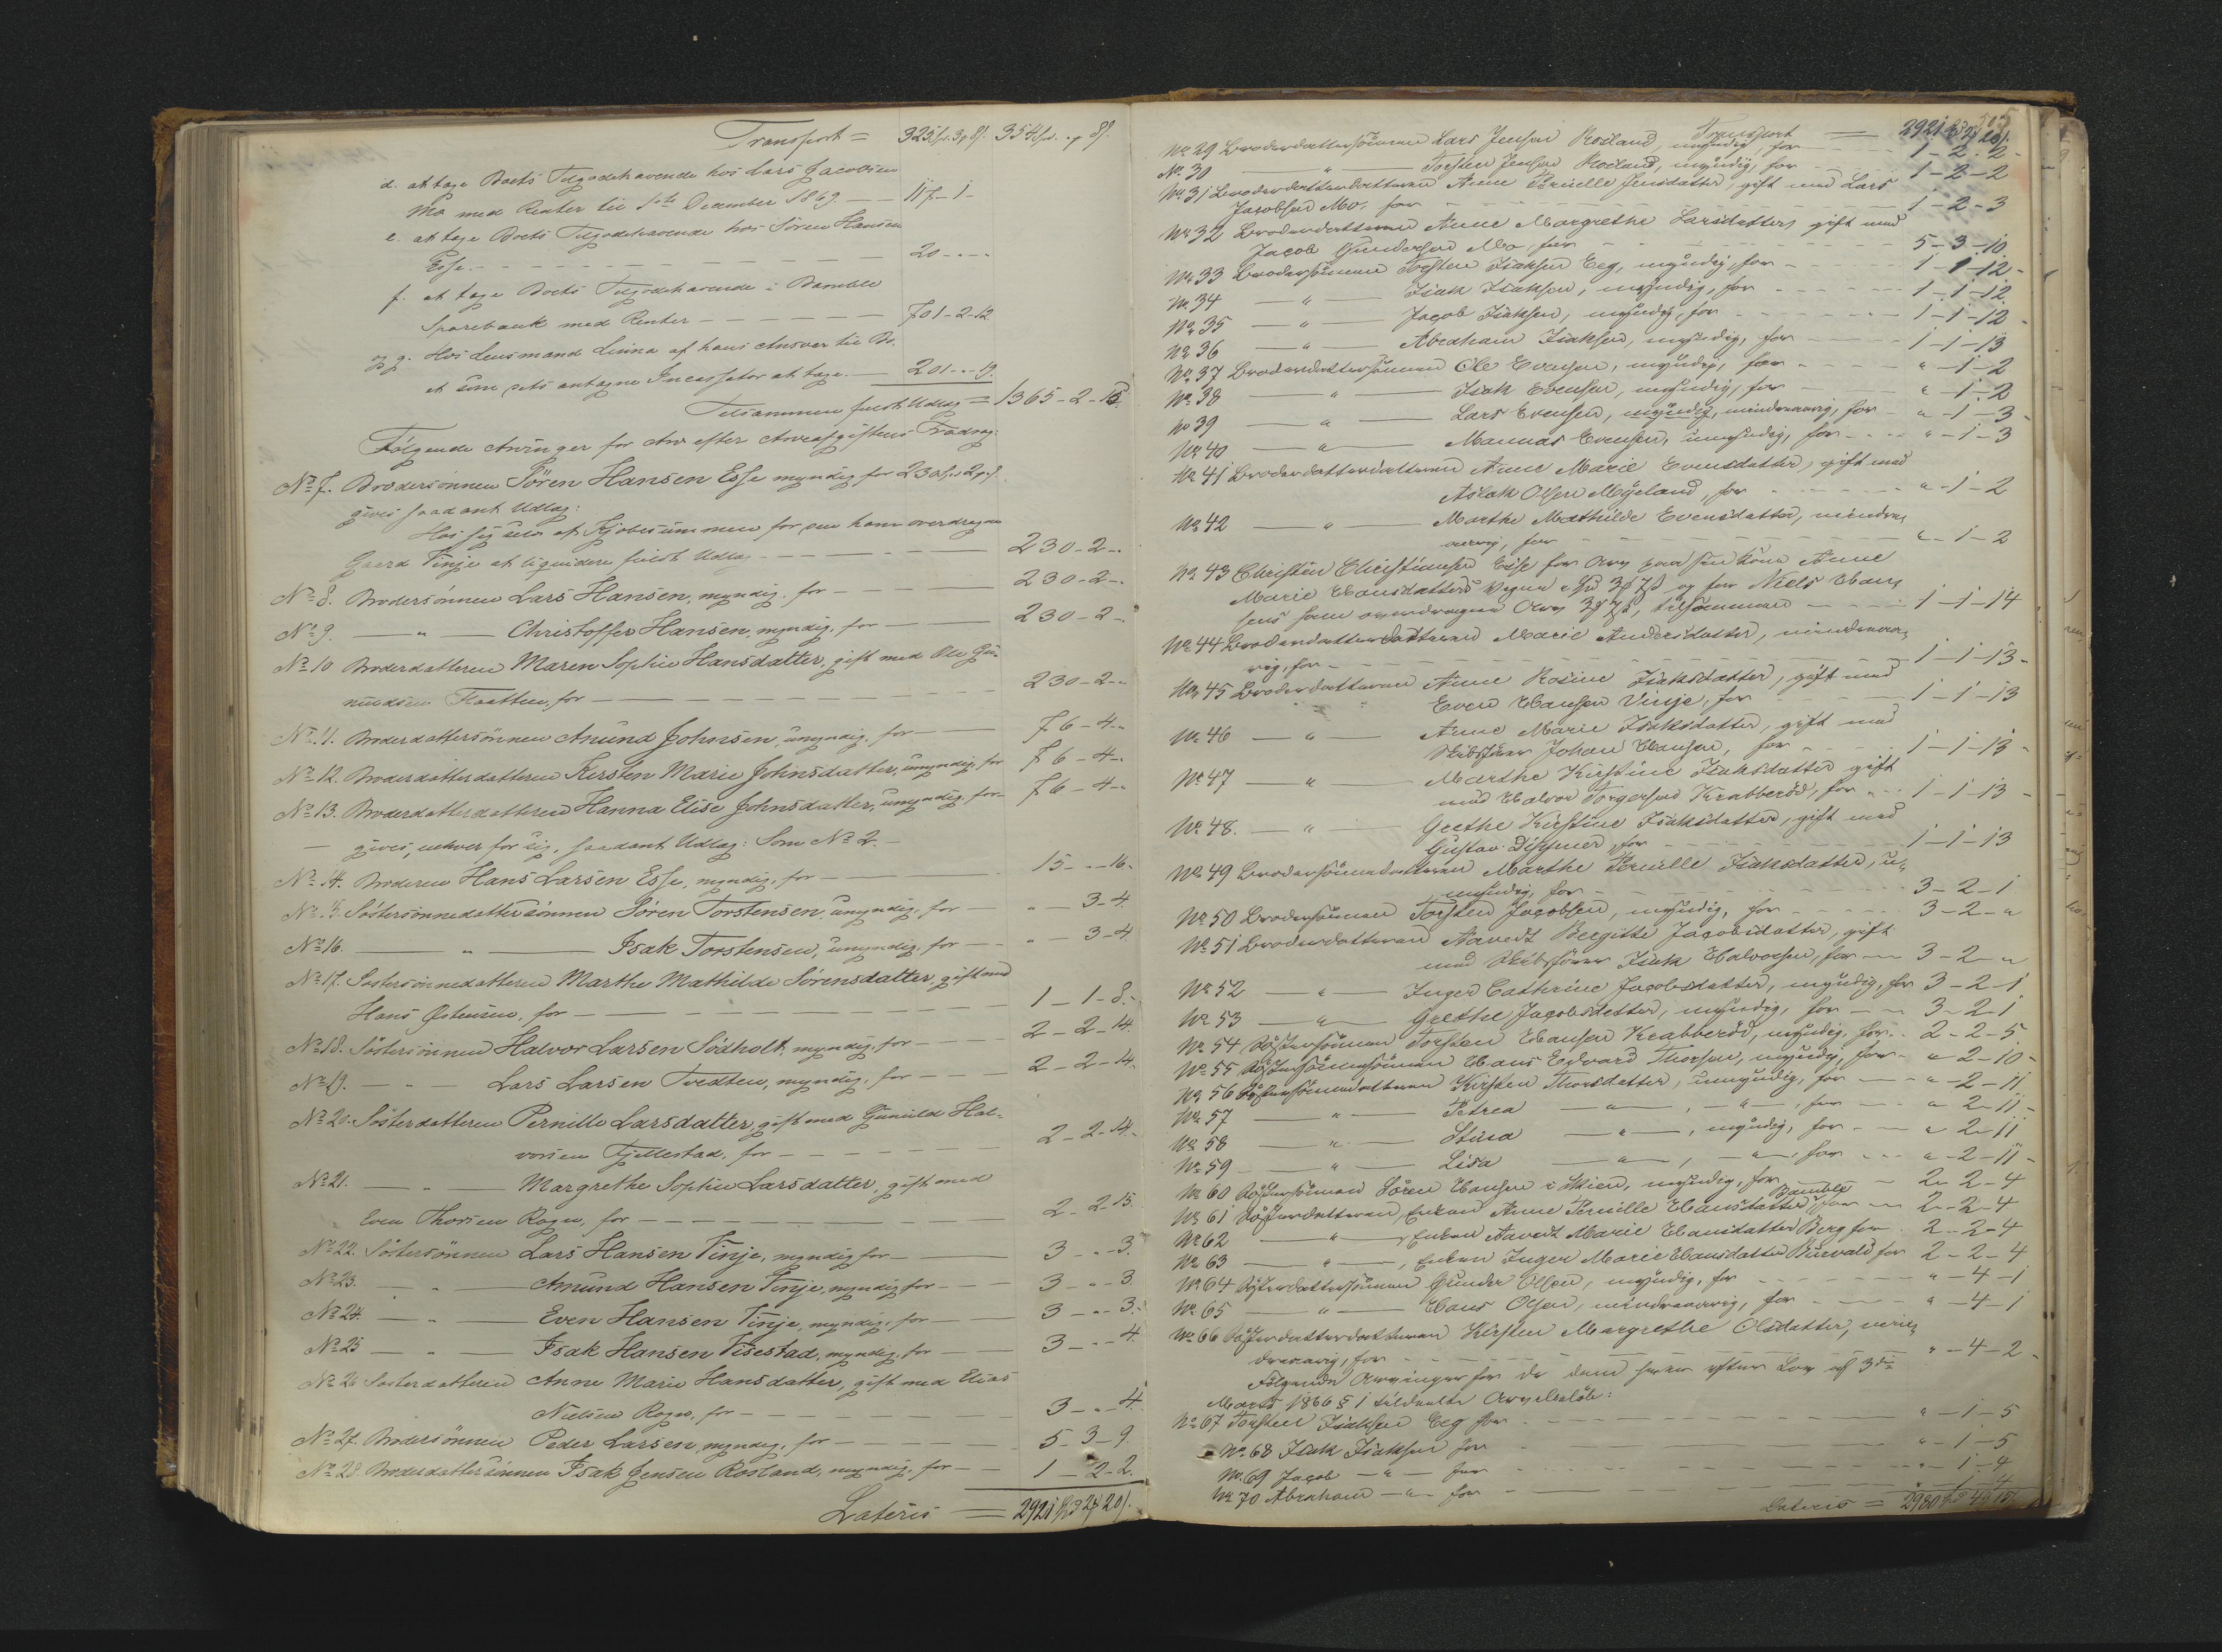 Transport = 325 spd. 3 " 8 s. 354 spd. " 8 s.
d. at tage Boets Tilgodehavende hos Lars Jacobsen
Mo med Renter til December 1869. — 117-1-
e. at tage Boets Tilgodehavende hos Sören Hansen
Esse. — 20 - - -
f. at tage Boets Tilgodehavende i Bamble
Sparebank med Renter — 701-2-12
og g. Hos Lensmand Linna af hans Ansvar til Bo-
et som dets antagne Incassator at tage. — 201 - - 19.
Tilsammen fuldt Udlæg = 1365-2-15.
Følgende Arvinger for Arv efter Arveafgiftens Fradrag:
No 7. Brodersönnen Sören Hansen Esse myndig for 230 sp. 2 "
gives saadant Udlæg:
Hos sig selv af Kjöbesummen for den ham overdragne
Gaard Vinje at liquidere fuldt Udlæg — 230-2-"
No 8. Brodersönnen Lars Hansen, myndig, for — 230-2-"
No 9. — " — Christoffer Hansen, myndig, for — 230-2-"
No 10 Broderdatteren Maren Sophie Hansdatter, gift med Ole Gu-
nundsen Flaatten, for — 230-2-"
No 11. Broderdattersönnen Anund Johnsen, umyndig, for — 76-4-"
No 12. Broderdatterdatteren Kirsten Marie Johnsdatter, umyndig, for 76-4-"
No 13. Broderdatterdatteren Hanna Elise Johnsdatter, umyndig, for 76-4-"
— gives, enhver for sig, saadant Udlæg: Som No 2. —
No 14. Broderen Hans Larsen Esse, myndig, for — 15-"-16.
No 15. Söstersönnedattersönnen Sören Torstensen, umyndig, for — "-3-4.
No 16. — " — Isak Torstensen, umyndig, for — "-3-4
No 17. Söstersönnedatteren Marthe Mathilde Sörensdatter, gift med
Hans Östensen, for — 1-1-8.
No 18. Söstersönnen Halvor Larsen Södholt, myndig, for — 2-2-14.
No 19. — " — Lars Larsen Tvedten, myndig, for — 2-2-14.
No 20. Sösterdatteren Pernille Larsdatter, gift med Gunuld Hal-
vorsen Fjellestad, for — 2-2-14.
No 21. — " — Margrethe Sophie Larsdatter, gift med
Even Thorsen Rogn, for — 2-2-15.
No 22. Söstersönnen Lars Hansen Vinje, myndig for — 3-"-3.
No 23. — " — Amund Hansen Vinje, myndig for — 3-"-3.
No 24. — " — Even Hansen Vinje, myndig, for — 3-"-3.
No 25 — " — Isak Hansen Visestad, myndig, for — 3-"-4.
No 26 Sösterdatteren Anne Marie Hansdatter, gift med Elias
Nielsen Rogn, for — 3-"-4.
No 27. Brodersönnen Peder Larsen, myndig, for — 5-3-9.
No 28. Broderdattersönnen Isak Jensen Rosland, myndig, for — 1-2-2.
Lateris = 2921 spd 2 " 20 s.
Transport = 2921 spd 2 " 20 s.
No 29 Broderdattersönnen Lars Jensen Rosland, myndig, for 1-2-2
No 30 — " — Torsten Jensen Rosland, myndig, for 1-2-2
No 31 Broderdatterdatteren Anne Pernille Jensdatter, gift med Lars
Jacobsen Mo, for — 1-2-3
No 32 Broderdatteren Anne Margrethe Larsdatter, gift med
Jacob Gundersen Mo, for — 5-3-10
No 33 Brodersönnen Torsten Isaksen Eeg, myndig, for — 1-1-12
No 34 — " — Isak Isaksen, myndig, for — 1-1-12
No 35 — " — Jacob Isaksen, myndig, for — 1-1-12
No 36 — " — Abraham Isaksen, myndig, for — 1-1-13
No 37 Broderdattersönnen Ole Evensen, myndig, for — "-1-2
No 38 — " — Isak Evensen, myndig, for — "-1-2
No 39 — " — Lars Evensen, myndig, mindreaarig, for "-1-3
No 40 — " — Mannas Evensen, umyndig, for — "-1-3
No 41 Broderdatterdatteren Anne Marie Evensdatter, gift med
Aslak Olsen Myeland, for — "-1-2
No 42 — " — Marthe Mathilde Evensdatter, mindre-
aarig, for — "-1-2
No 43 Christen Christiansen Esse for Arv paa sin Kone Anne
Marie Hansdatters Vegne og for Niels Han-
sens ham overdragne Arv tilsammen — 1-1-14
No 44 Broderdatterdatteren Marie Andersdatter, mindreaa-
rig, for — 1-1-13
No 45 Broderdatteren Anne Rosine Isaksdatter, gift med
Even Hansen Vinje, for — 1-1-13
No 46 — " — Anne Marie Isaksdatter, gift med
Skibsförer Johan Hansen, for — 1-1-13
No 47 — " — Marthe Kirstine Isaksdatter gift
med Halvor Torgersen Krabberöd, for — 1-1-13
No 48. — " — Grethe Kirstine Isaksdatter, gift med
Gustav for — 1-1-13
No 49 Brodersönnedatteren Marthe Pernille Isaksdatter, u-
myndig, for — 3-2-1
No 50 Brodersönnen Torsten Jacobsen, myndig, for — 3-2-"
No 51 Broderdatteren Aavedt Bergitte Jacobsdatter, gift
med Skibsförer Isak Halvorsen, for — 3-2-"
No 52 — " — Inger Cathrine Jacobsdatter, myndig, for 3-2-1
No 53 — " — Grethe Jacobsdatter, myndig, for — 3-2-1
No 54 Söstersönnen Torsten Hansen Krabberöd, myndig, for 2-2-5
No 55 Söstersönnesönnen Hans Edvard Thorsen, myndig, for "-2-10
No 56 Söstersönnedatteren Kirsten Thorsdatter, umyndig, for — "-2-11
No 57 — " — Petrea — " —, — " —, for — "-2-11
No 58 — " — Stina — " —, myndig, for — "-2-11
No 59 — " — Lisa — " —, — " —, for — "-2-11
No 60 Söstersönnen Sören Hansen i Skien, myndig, for — 2-2-4
No 61 Sösterdatteren, Enken Anne Pernille Hansdatter Bamble for — 2-2-4
No 62 — " —, Enken Aavedt Marie Hansdatter Berg for 2-2-4
No 63 — " —, Enken Inger Marie Hansdatter for 2-2-4
No 64 Sösterdattersönnen Gunder Olsen, myndig, for — "-4-1
No 65 — " — Hans Olsen, mindreaarig, for — "-4-1
No 66 Sösterdatterdatteren Kirsten Margrethe Olsdatter, min-
dreaarig, for — "-4-2
Fölgende Arvinger for de dem efter Lov af 3die
Marts 1866 § 1 tildeelte Arvebelöb:
No 67 Torsten Isaksen Eeg for — "-1-5
No 68 Isak Isaksen for — "-1-5
No 69 Jacob — " — for — "-1-4
No 70 Abraham — " — for — "-1-4
Lateris = 2980 spd 4 " 15 s.